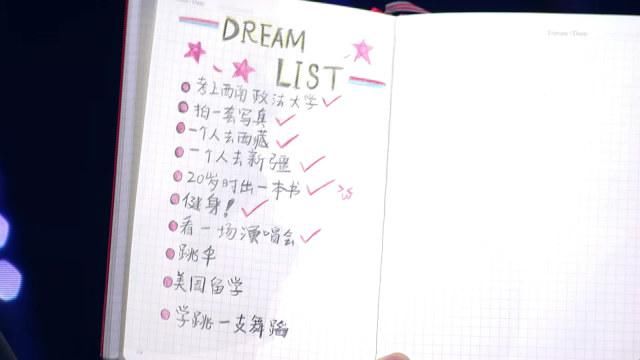 DREAM
LIST
考上西南政法大学
拍一套写真
一个人去西藏
一个人去新疆
20岁时出一本书
健身!
看一场演唱会
跳伞
美国留学
学跳一支舞蹈